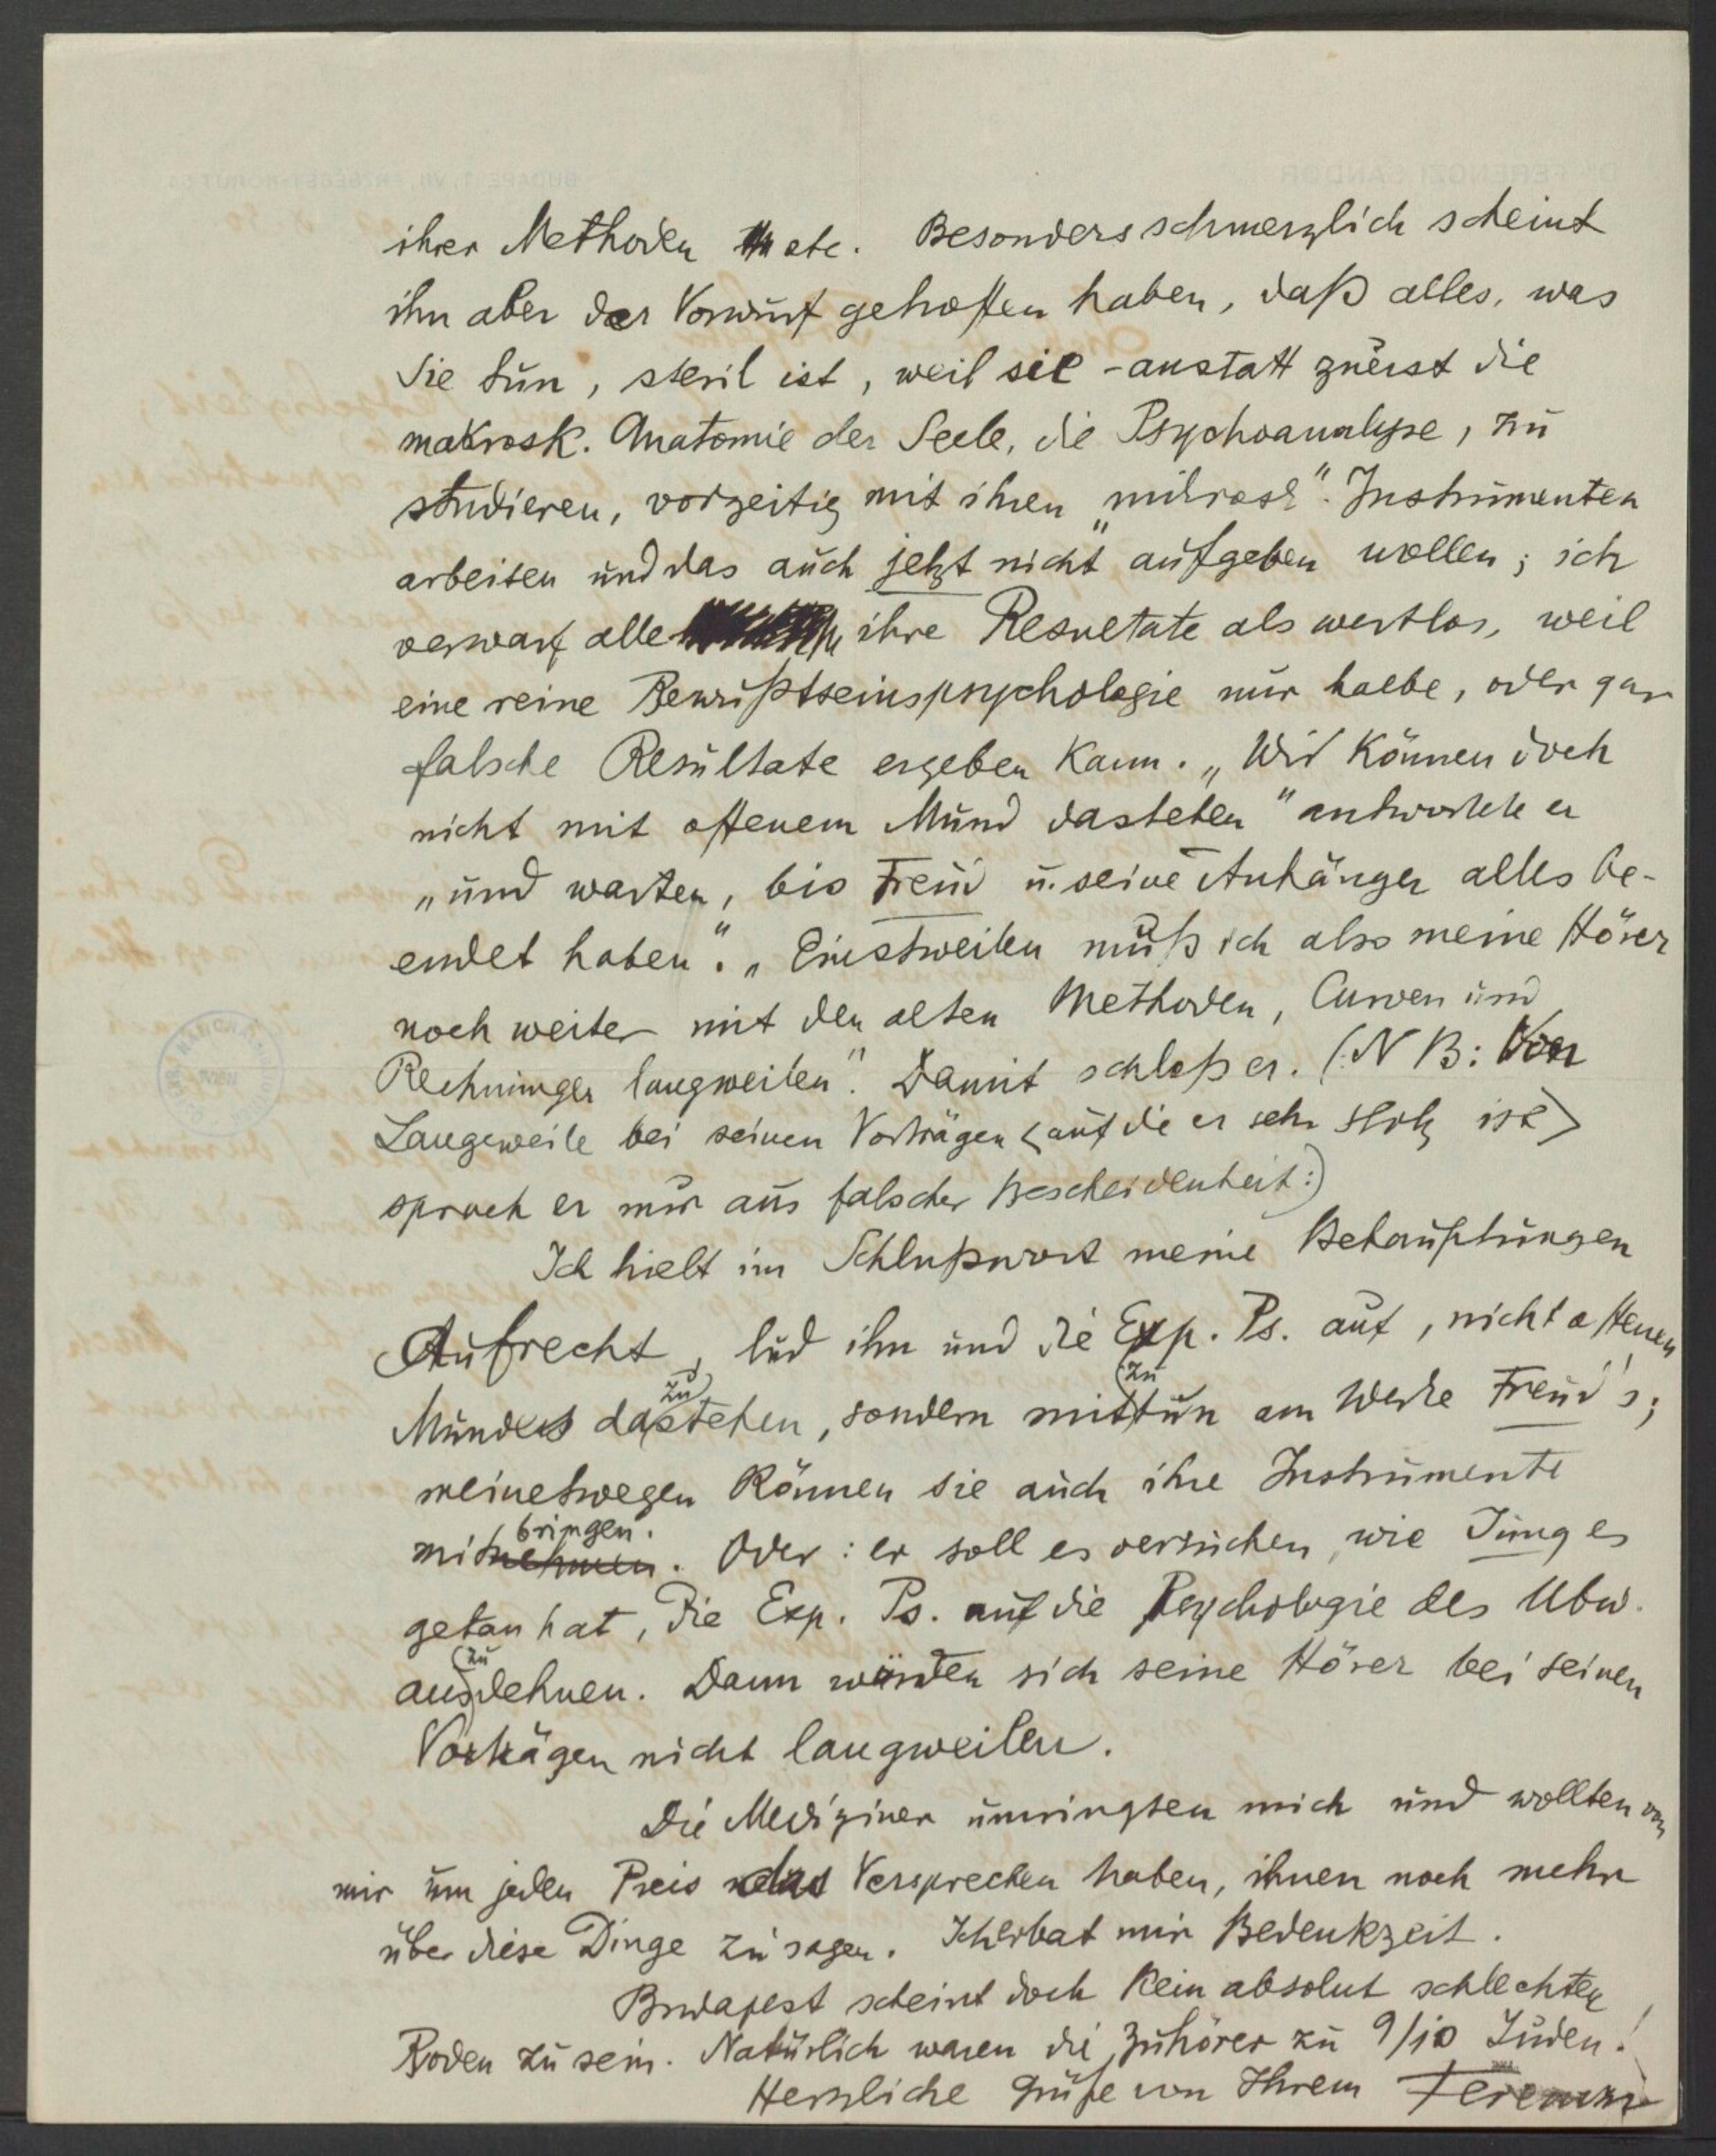 ihrer Methoden etc. Besonders schmerzlich scheint
ihn aber der Vorwurf getroffen haben, daß alles, was
Sie tun, steril ist, weil sie - anstatt zuerst die
makrosk. Anatomie der Seele, die Psychoanalyse, zu
studieren, vorzeitig mit ihren „mikrosk“. Instrumenten
arbeiten und das auch jetzt nicht aufgeben wollen; ich
verwarf alle ihre Resultate als wertlos, weil
eine reine Bewußtseinspsychologie nur halbe, oder gar
falsche Resultate ergeben kann. „Wir können doch
nicht mit offenem Mund dastehen“ antwortete er
„und warten, bis Freud u. seine Anhänger alles be-
endet haben“. „Einstweilen muß ich also meine Hörer
noch weiter mit den alten Methoden, Curven und
Rechnungen langweilen“. Damit schloß er. (N B: Von
Langeweile bei seinen Vorträgen <auf die er sehr stolz ist>
sprach er nur aus falscher Bescheidenheit:)
Ich hielt im Schlußwort meine Behauptungen
Aufrecht, lud ihn und die Exp. Ps. auf, nicht offenen
Mundes dazustehen, sondern mitzutun am Werke Freud's;
meinetwegen können sie auch ihre Instrumente
mitnehmen bringen. Oder: er soll es versuchen, wie Jung es
getan hat, die Exp. Ps. auf die Psychologie des Ubw.
auszudehnen. Dann würden sich seine Hörer bei seinen
Vorträgen nicht langweilen.
Die Mediziner umringten mich und wollten von
mir um jeden Preis das Versprechen haben, ihnen noch mehr
über diese Dinge zu sagen. Ich erbat mir Bedenkzeit.
Budapest scheint doch kein absolut schlechter
Boden zu sein. Natürlich waren die Zuhörer zu 9/10 Juden!
Herzliche Grüße von Ihrem Ferenczi